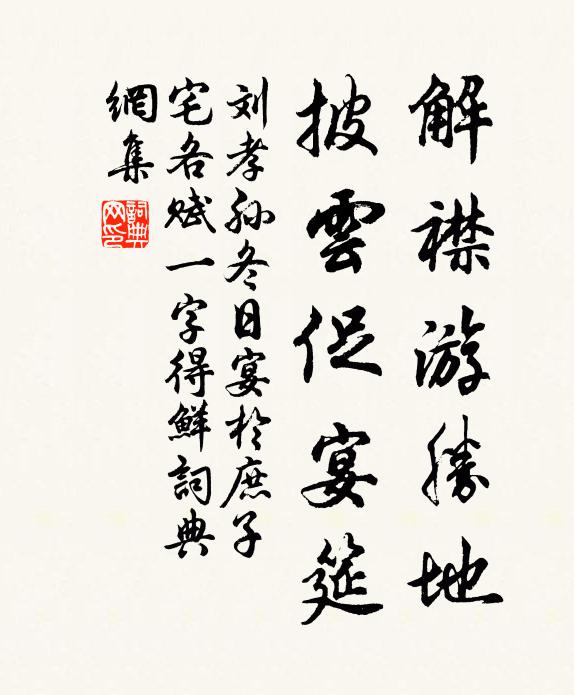 解襟游勝地
披雲促宴筵
刘孝孙冬日宴於庶子
宅各赋一字得鮮詞典
網集
詞典網印